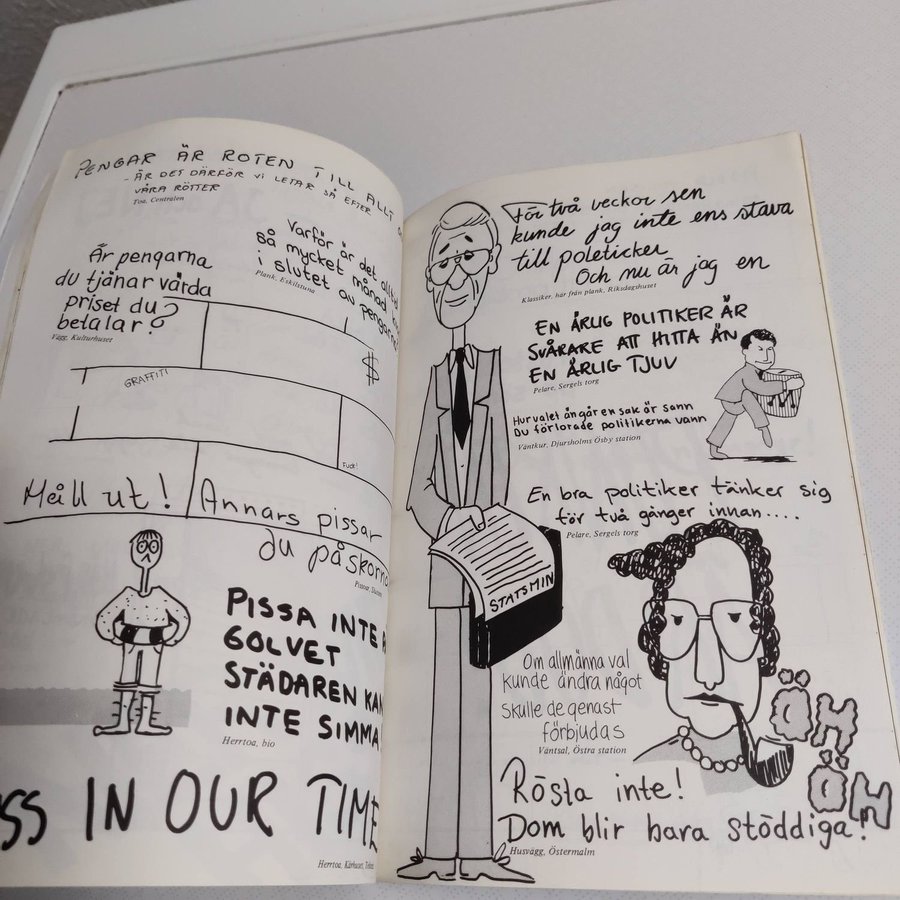 PENGAR ÄR ROTEN TILL ALLT
- ÄR DET DÄRFÖR VI LETAR SÅ EFTER
VÅRA RÖTTER
Toa, Centralen
Varför är det alltid
så mycket månad kvar
i slutet av pengarna
Plank, Eskilstuna
Är pengarna
du tjänar värda
priset du
betalar?
Vägg, Kulturhuset
$
GRAFFITI
Fuck!
Håll ut! Annars pissar
du på skorna
Pissoar,
PISSA INTE
GOLVET
STÄDAREN KAN
INTE SIMMA
Herrtoa, bio
SS IN OUR TIME
Herrtoa, Kårhuset,
För två veckor sen
kunde jag inte ens stava
till poleticker
Och nu är jag en
Klassiker, här från plank, Riksdagshuset
EN ÄRLIG POLITIKER ÄR
SVÅRARE ATT HITTA ÄN
EN ÄRLIG TJUV
Pelare, Sergels torg
Hur valet än går en sak är sann
Du förlorade politikerna vann
Väntkur, Djursholms Ösby station
En bra politiker tänker sig
för två gånger innan....
Pelare, Sergels torg
STATSMIN
Om allmänna val
kunde ändra något
skulle de genast
förbjudas
Väntsal, Östra station
ÖH
ÖH
Rösta inte!
Dom blir bara stöddiga!
Husvägg, Östermalm